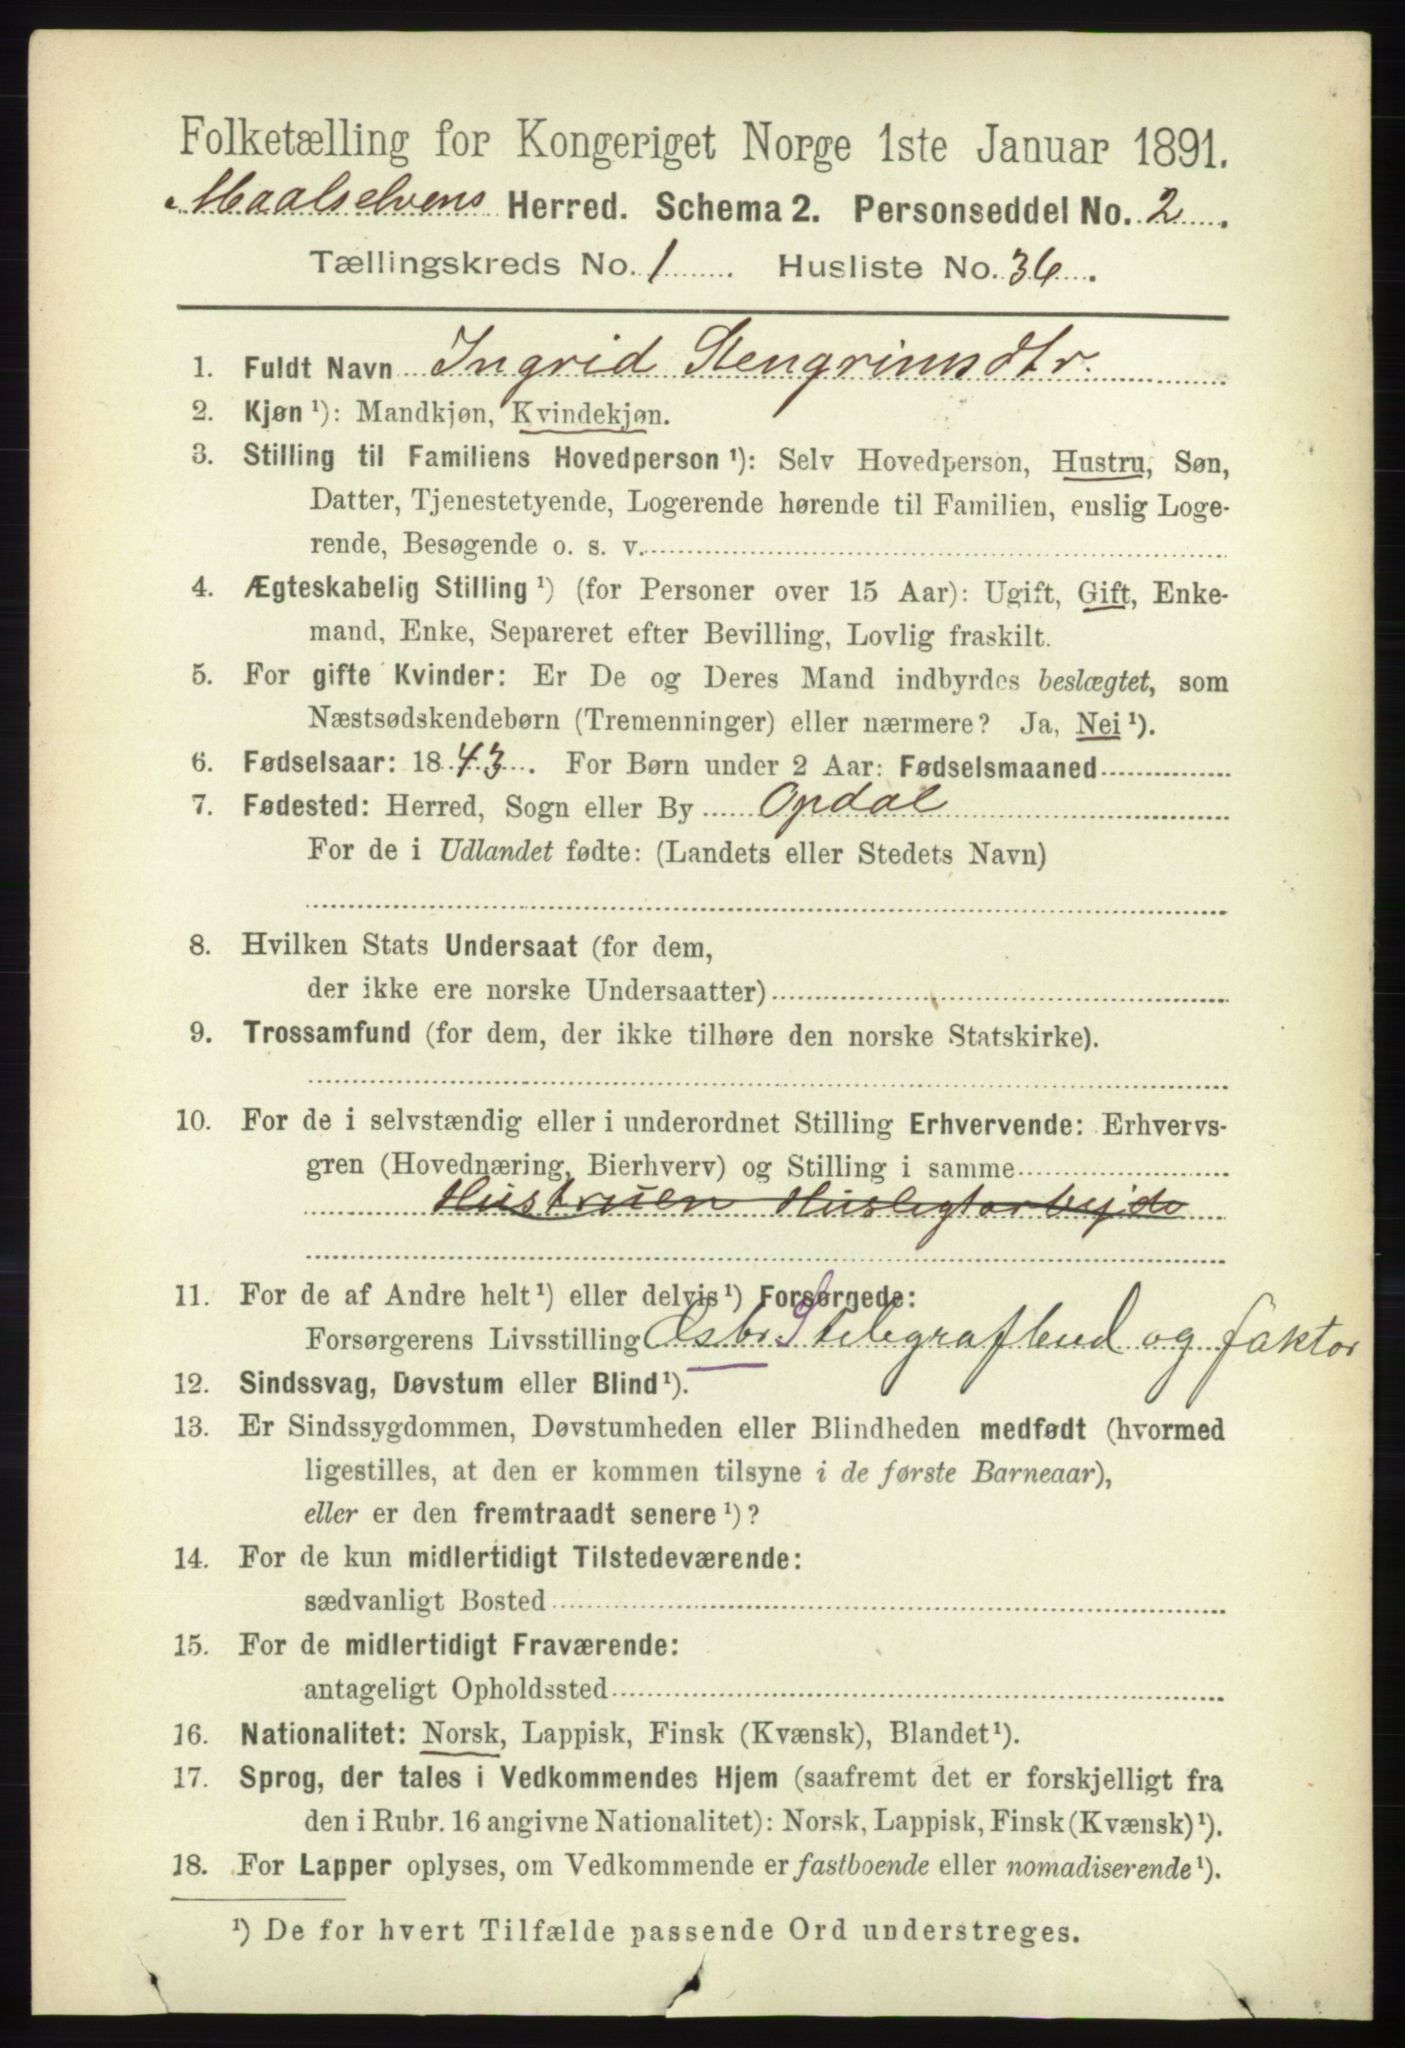 Folketælling for Kongeriget Norge 1ste Januar 1891.
Maalselvens Herred. Schema 2. Personseddel No. 2.
Tællingskreds No. 1 Husliste No. 36.
1. Fuldt Navn Ingrid Stengrimsdtr.
2. Kjøn ¹): Mandkjøn, Kvindekjøn.
3. Stilling til Familiens Hovedperson ¹): Selv Hovedperson, Hustru, Søn,
Datter, Tjenestetyende, Logerende hørende til Familien, enslig Loge-
rende, Besøgende o. s. v.
4. Ægteskabelig Stilling ¹) (for Personer over 15 Aar): Ugift, Gift, Enke-
mand, Enke, Separeret efter Bevilling, Lovlig fraskilt.
5. For gifte Kvinder: Er De og Deres Mand indbyrdes beslægtet, som
Næstsødskendebørn (Tremenninger) eller nærmere? Ja, Nei ¹).
6. Fødselsaar: 1843. For Børn under 2 Aar: Fødselsmaaned
7. Fødested: Herred, Sogn eller By Opdal
For de i Udlandet fødte: (Landets eller Stedets Navn)
8. Hvilken Stats Undersaat (for dem,
der ikke ere norske Undersaatter)
9. Trossamfund (for dem, der ikke tilhøre den norske Statskirke).
10. For de i selvstændig eller i underordnet Stilling Erhvervende: Erhvervs-
gren (Hovednæring, Bierhverv) og Stilling i samme
Hustruen Husligtarbejde
11. For de af Andre helt ¹) eller delvis ¹) Forsørgede:
Forsørgerens Livsstilling S telegrafbud og faktor
12. Sindssvag, Døvstum eller Blind ¹).
13. Er Sindssygdommen, Døvstumheden eller Blindheden medfødt (hvormed
ligestilles, at den er kommen tilsyne i de første Barneaar),
eller er den fremtraadt senere ¹)?
14. For de kun midlertidigt Tilstedeværende:
sædvanligt Bosted
15. For de midlertidigt Fraværende:
antageligt Opholdssted
16. Nationalitet: Norsk, Lappisk, Finsk (Kvænsk), Blandet ¹).
17. Sprog, der tales i Vedkommendes Hjem (saafremt det er forskjelligt fra
den i Rubr. 16 angivne Nationalitet): Norsk, Lappisk, Finsk (Kvænsk) ¹).
18. For Lapper oplyses, om Vedkommende er fastboende eller nomadiserende ¹).
¹) De for hvert Tilfælde passende Ord understreges.